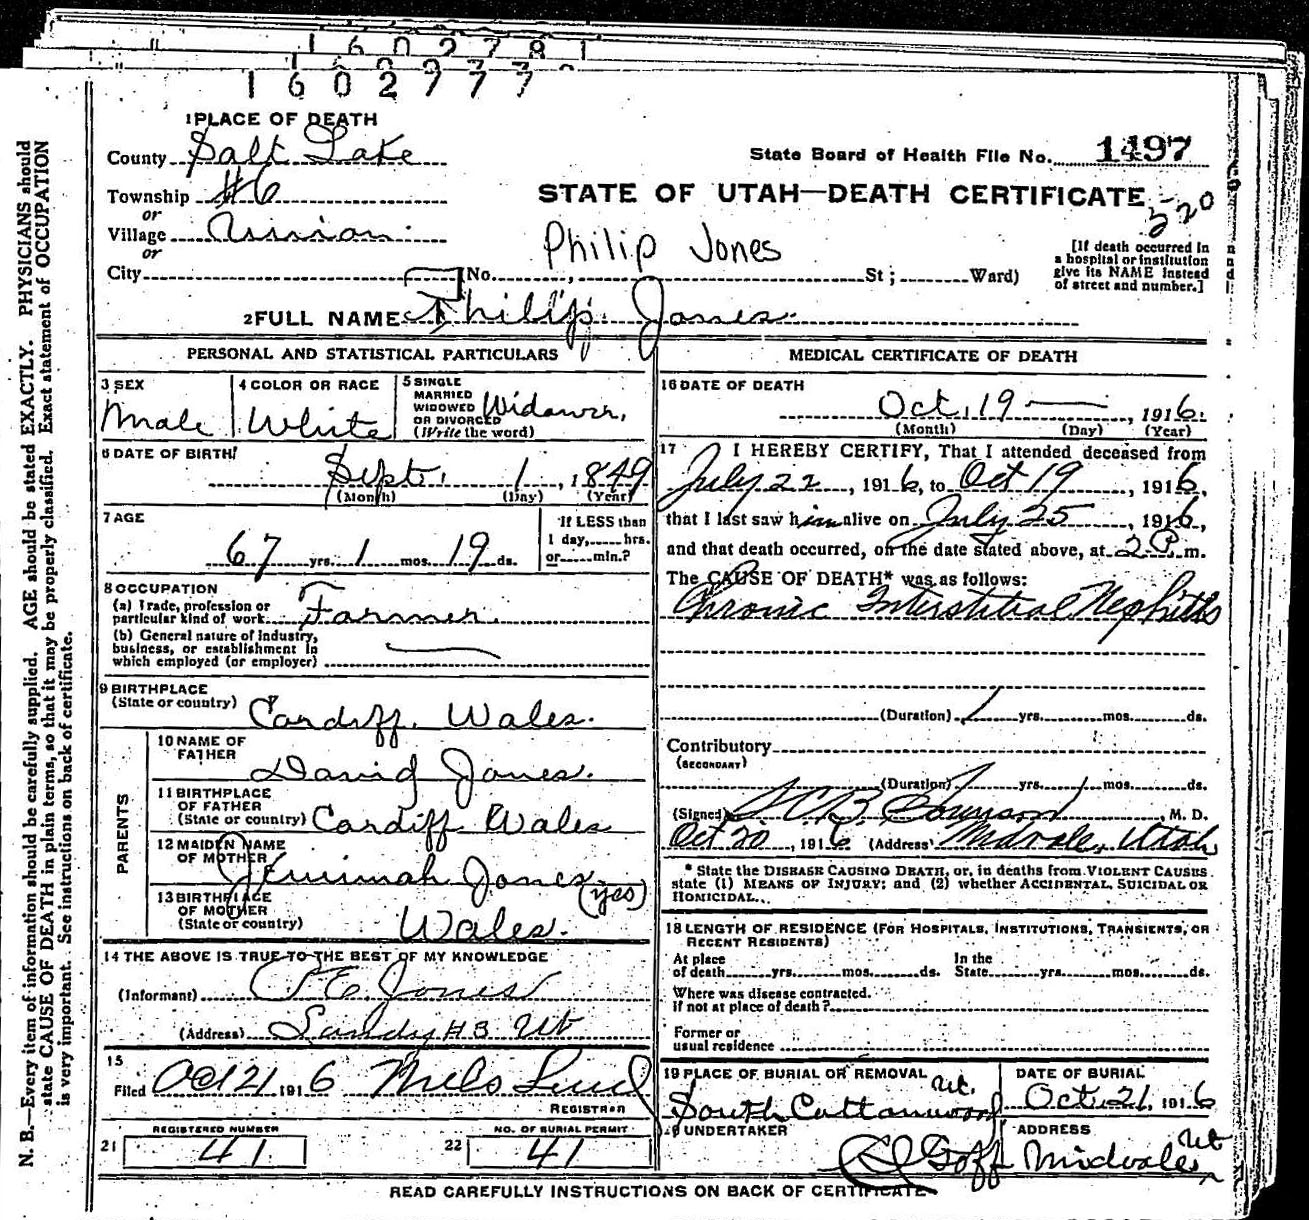 1602781
1602977
1 PLACE OF DEATH
County Salt Lake
State Board of Health File No. 1497
Township #6
STATE OF UTAH—DEATH CERTIFICATE
520
or
Village Union
or
Philip Jones
[If death occurred in
a hospital or institution
give its NAME instead
of street and number.]
City [No. , St ; Ward)
2 FULL NAME Philip Jones
PERSONAL AND STATISTICAL PARTICULARS
3 SEX Male
4 COLOR OR RACE White
5 SINGLE
MARRIED
WIDOWED
OR DIVORCED
(Write the word) Widower,
6 DATE OF BIRTH
Sept. 1, 1849
(Month) (Day) (Year)
7 AGE
67 yrs. 1 mos. 19 ds.
If LESS than
1 day, hrs.
or min.?
8 OCCUPATION
(a) Trade, profession or
particular kind of work Farmer.
(b) General nature of industry,
business, or establishment in
which employed (or employer)
9 BIRTHPLACE
(State or country) Cardiff. Wales.
PARENTS
10 NAME OF
FATHER David Jones.
11 BIRTHPLACE
OF FATHER
(State or country) Cardiff Wales
12 MAIDEN NAME
OF MOTHER Jemimah Jones (yes)
13 BIRTHPLACE
OF MOTHER
(State or country) Wales.
14 THE ABOVE IS TRUE TO THE BEST OF MY KNOWLEDGE
(Informant) P E Jones
(Address) Sandy #3 Ut
15
Filed Oct 21 1916
REGISTRAR
REGISTERED NUMBER
21 41
NO. OF BURIAL PERMIT
22 41
MEDICAL CERTIFICATE OF DEATH
16 DATE OF DEATH
Oct. 19 , 1916.
(Month) (Day) (Year)
17 I HEREBY CERTIFY, That I attended deceased from
July 22 , 1916, to Oct 19 , 1916,
that I last saw him alive on July 25 , 1916,
and that death occurred, on the date stated above, at 2 P. m.
The CAUSE OF DEATH* was as follows:
Chronic Interstitial Nephritis
(Duration) 1 yrs. mos. ds.
Contributory
(SECONDARY)
(Duration) yrs. mos. ds.
(Signed) , M. D.
Oct 20 , 1916 (Address) Midvale, Utah
* State the DISEASE CAUSING DEATH, or, in deaths from VIOLENT CAUSES.
state (1) MEANS OF INJURY; and (2) whether ACCIDENTAL, SUICIDAL OR
HOMICIDAL.
18 LENGTH OF RESIDENCE (FOR HOSPITALS, INSTITUTIONS, TRANSIENTS, OR
RECENT RESIDENTS)
At place
of death yrs. mos. ds.
In the
State yrs. mos. ds.
Where was disease contracted.
if not at place of death?
Former or
usual residence
19 PLACE OF BURIAL OR REMOVAL Ut.
South Cottonwood
DATE OF BURIAL
Oct. 21, 1916
UNDERTAKER
Goff
ADDRESS
Midvale Ut
READ CAREFULLY INSTRUCTIONS ON BACK OF CERTIFICATE
N. B.—Every item of information should be carefully supplied. AGE should be stated EXACTLY. PHYSICIANS should
state CAUSE OF DEATH in plain terms, so that it may be properly classified. Exact statement of OCCUPATION
is very important. See instructions on back of certificate.